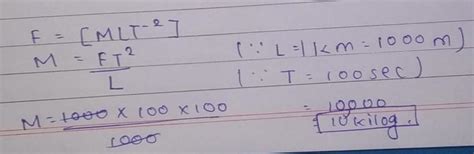 F = [MLT⁻²]
M = FT²/L (∵ L = 1 km = 1000 m)
(∵ T = 100 sec)
M = 1000 × 100 × 100 / 1000 = 10000
10 kilog.